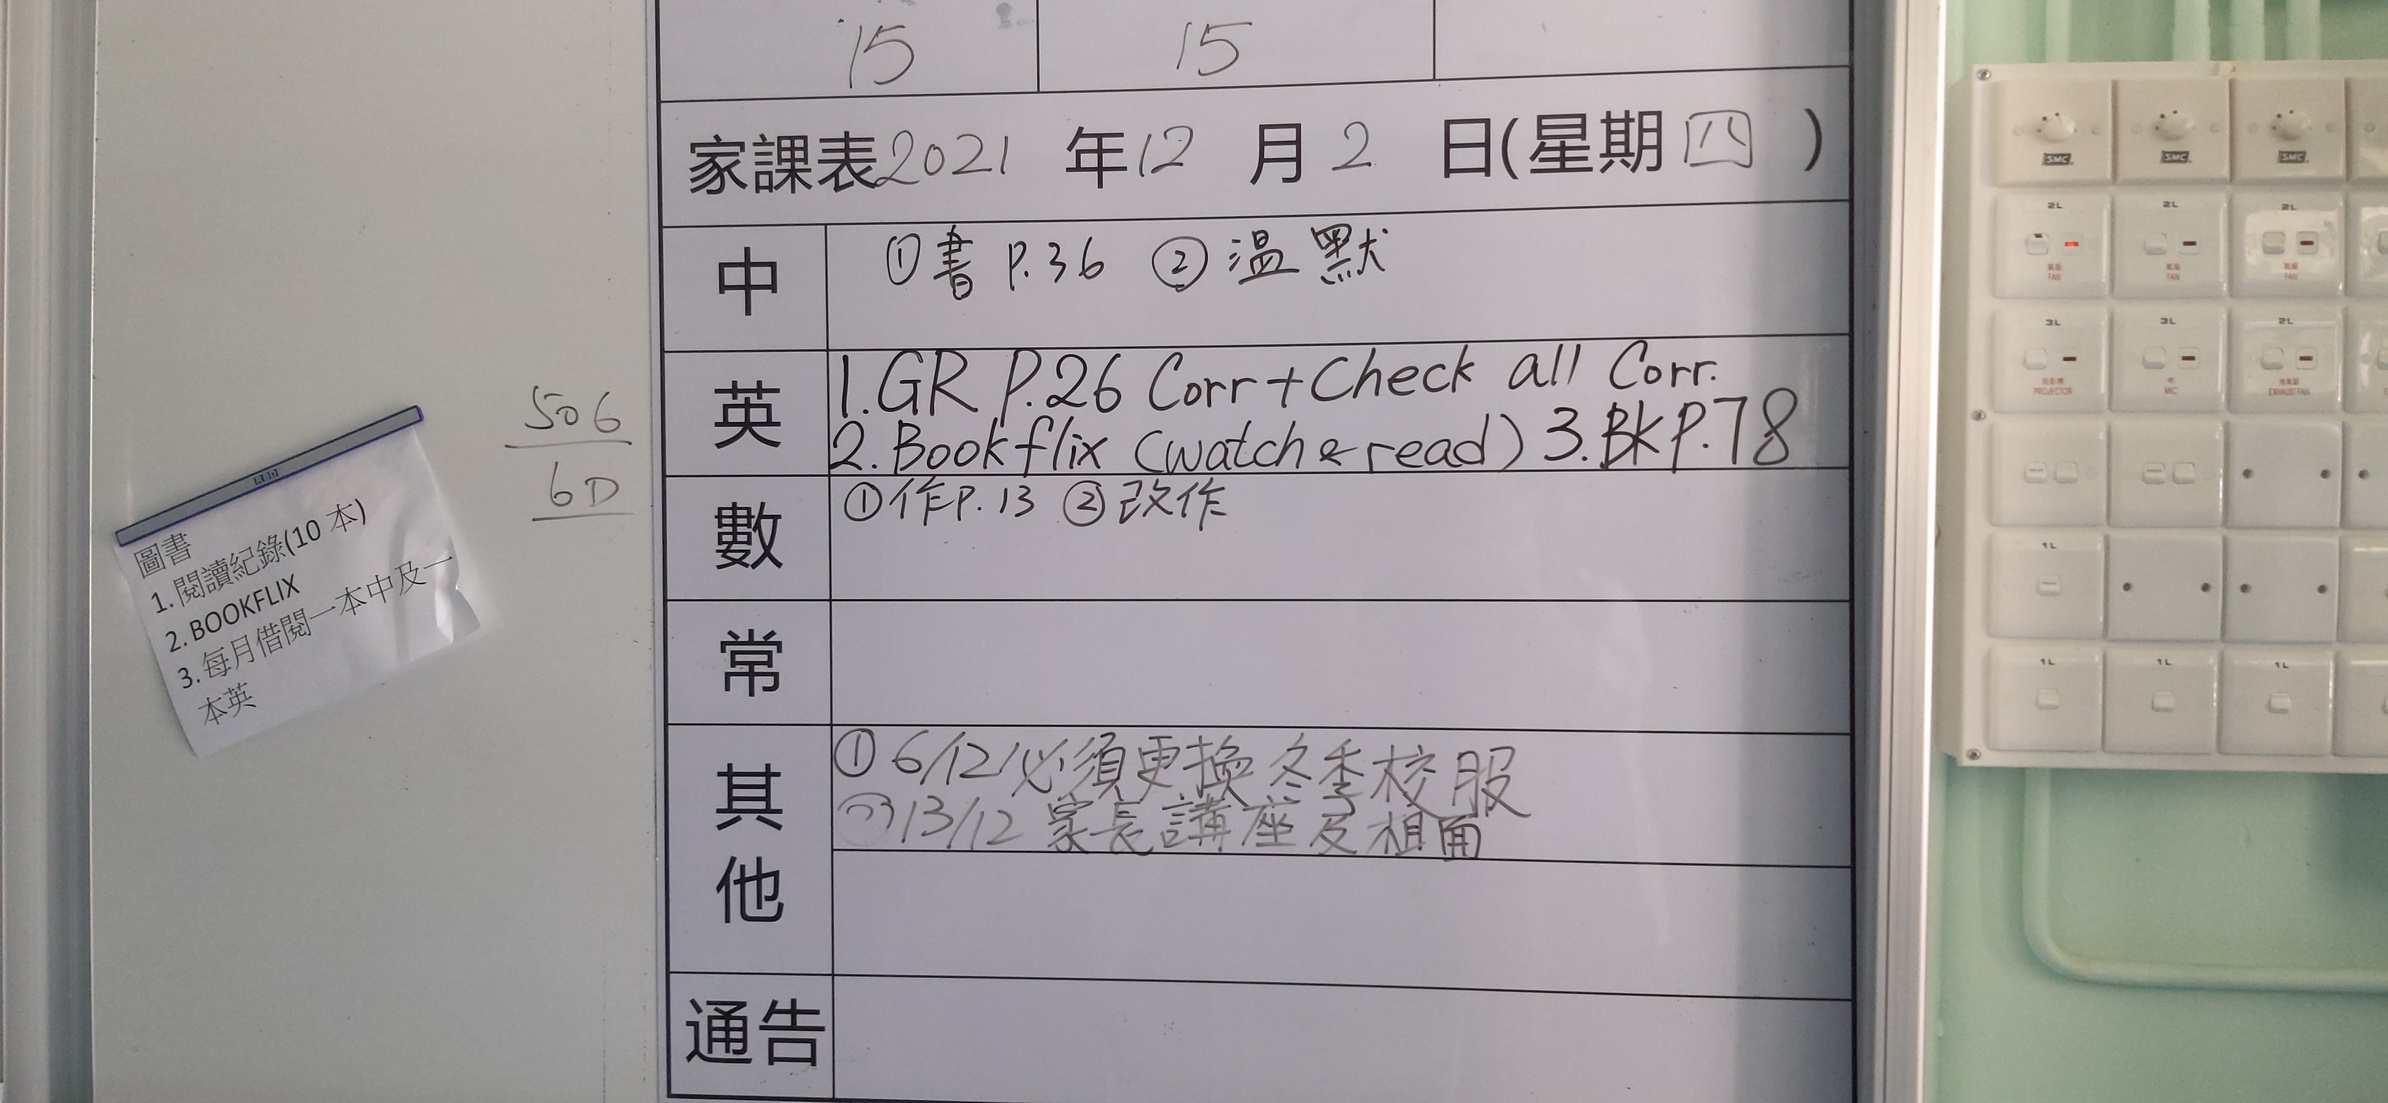 15 15
家課表2021 年12 月 2 日(星期四)
中 ①書 P.36 ②温默
英 1.GR P.26 Corr+Check all Corr.
2.Bookflix (watch & read) 3.BK P.78
數 ①作P.13 ②改作
常
其他 ① 6/12 必須更換冬季校服
② 13/12 家長講座及相面
通告
506
6D
圖書
1. 閱讀紀錄(10 本)
2. BOOKFLIX
3. 每月借閱一本中及一
本英
SMC SMC SMC
2L 2L 2L
風扇 風扇 風扇
FAN FAN FAN
3L 3L 2L
PROJECTOR MIC EXHAUST FAN
1L
1L 1L 1L